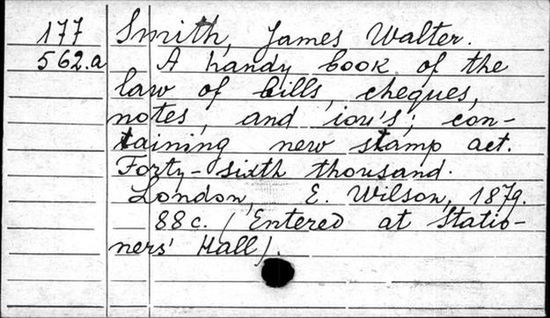 177 Smith, James Walter.
562.a A handy book of the
law of bills, cheques,
notes, and iou's; con-
taining new stamp act.
Forty-sixth thousand.
London, E. Wilson, 1879.
88c. (Entered at Statio-
ners' Hall).